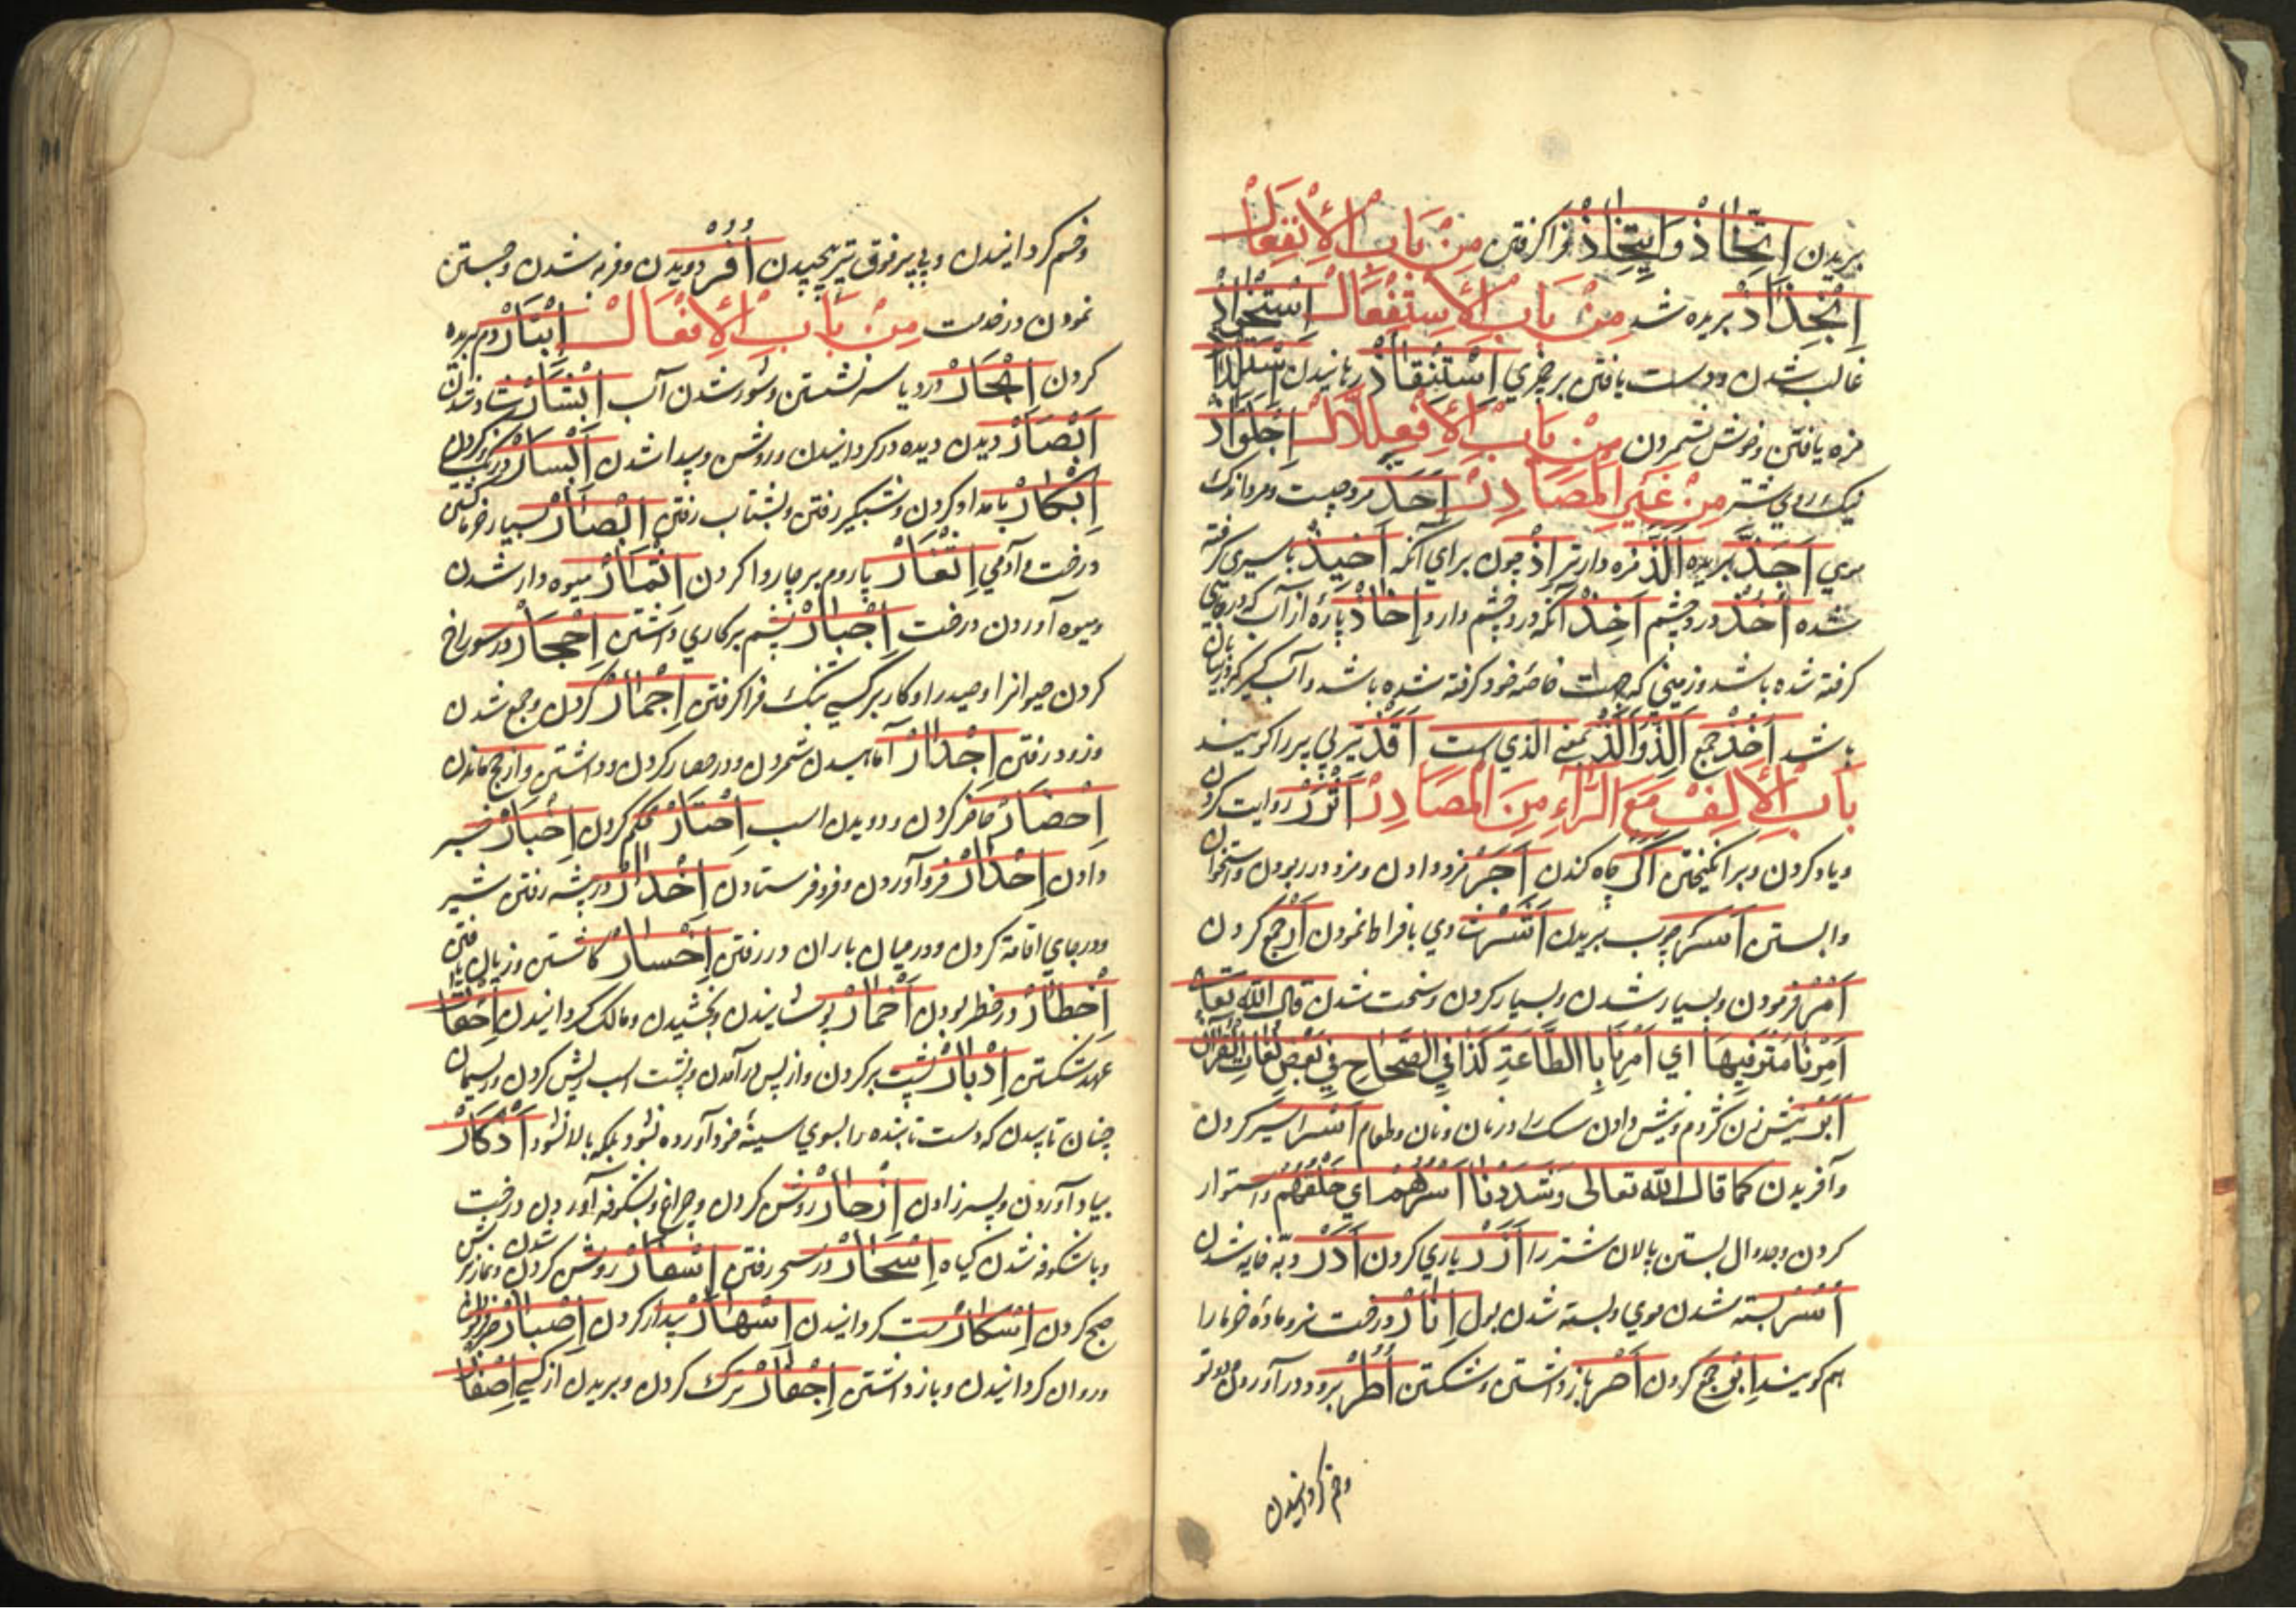 بریدن اِتِّخَاذْ وَاِیتِخَاذْ فراکرفتن مِنْ بَابِ الْاِنْفِعَالْ
اِنْجِذَاذْ بریده شد مِنْ بَابِ الْاِسْتِفْعَالْ اِسْتِحْوَاذْ
غالب شدن ودست یافتن بر چیزی اِسْتِنْقَاذْ رهانیدن اِسْتِلْذَاذْ
مزه یافتن وخوش شمردن مِنْ بَابِ الْاِفْعِلَّالْ اِجْلِوَّاذْ
نیک روی شتر مِنْ غَیْرِ الْمَصَادِرْ اَحَذّ مرد چست ومردانک
موی اَجَذّ بریده اَلَذّ مزه دارتر اِذْ چون برای آنکه اَخِیذْ باسیری کرفته
شده اُخُذْ درد چشم اَخِذْ آنکه درد چشم دارد اِخَاذْ پارهٔ از آب که در جایی
کرفته شده باشد وزمینی که جهت خاصهٔ خود کرفته شده باشد وآب کیر که در بیابان
باشد اُخُذْ جمع اَلَّذْ وَاَلَّذِ بمعنی الذی است اَقَذّ تیر بی پر را کویند
بَابُ الْاَلِفْ مَعَ الرَّاءِ مِنَ الْمَصَادِرْ اَثْرْ روایت کردن
ویاد کردن وبرانکیختن اَکْر چاه کندن اَجْر مزد دادن ومزدور بودن واستخوان
وابستن اَشْر چوب بریدن اَشَر دنه وی بافراط نمودن اَرْ جمع کردن
اَمْر فرمودن وبسیار شدن وبسیار کردن وسخت شدن قال الله تعالی
اَمَرْنَا مُتْرَفِیهَا ای اَمَرْنَا بِالطَّاعَةِ کَذَا فِی الصِّحَاحِ فِی بَعْضِ لُغَاتِ الْقُرْآنِ
اَبْر نیش زدن کژدم ونیش دادن سک را در نان ونان وطعام اَسْر اسیر کردن
وآفریدن کما قال الله تعالی وَشَدَدْنَا اَسْرَهُمْ ای خَلْقَهُمْ واستوار
کردن وبدوال بستن پالان شتر را اَزْرْ یاری کردن اَدَرْ دبه خایه شدن
اُسْر بسته شدن موی وبسته شدن بول اِبَارْ درخت نر وماده خرما را
هم کویند جمع کردن اَصْر بازداشتن وشکستن اُطُرْ برود درآوردن
وخم کردانیدن
وخم کردانیدن وپی بر فوق تیر پیچیدن اُفُرْ دویدن وفربه شدن وجستن
نمودن در خدمت مِنْ بَابِ الْاِفْعَالْ اِبْتَارْ دم بریده
کردن اِبْحَارْ در دریا سر نشستن وشور شدن آب اِبْشَارْ شاد شدن
اِبْصَارْ دیدن دیده ور کردانیدن وروشن وپیدا شدن اِبْسَارْ
اِبْکَارْ بامداد کردن وشبکیر رفتن وبشتاب رفتن بسیار خرما
درخت وآدمی اِثْفَارْ پاردم بر چاروا کردن اِثْمَارْ میوه دار شدن
ومیوه آوردن درخت اِجْبَارْ بستم بر کاری داشتن اِجْحَارْ در سوراخ
کردن حیوانرا وصید را وکار بر کسی تنک فراکرفتن اِجْمَارْ کردن وجمع شدن
وزود رفتن اِحْدَارْ آماسیدن شمردن ودر حصار کردن وداشتن واز حج ماندن
اِحْضَارْ حاضر کردن ودویدن اسب اِحْتَارْ محکم کردن اِخْبَارْ خبر
دادن اِحْدَارْ فرود آوردن وفرو فرستادن اِخْدَارْ در بیشه رفتن شیر
ودر جای اقامة کردن ودر میان باران در رفتن اِخْسَارْ کاستن وزیان یافتن
اِخْطَارْ در خطر بودن اِخْمَارْ پوشانیدن وبخشیدن ومالک کردانیدن اِخْفَارْ
عهد شکستن اِدْبَارْ پشت بر کردن واز پس درآمدن وپشت اسب ریش کردن وریسمان
چنان تابیدن که دست تابنده را بسوی سینه فرود آورده نشود بلکه بالا شود اِذْکَارْ
بیاد آوردن وپسر زادن اِزْهَارْ روشن کردن چراغ وشکوفه آوردن درخت
وباشکوفه شدن کیاه اِسْحَارْ در سحر رفتن اِسْفَارْ روشن شدن کردن ونماز در
صبح کردن اِسْکَارْ مست کردانیدن اِسْهَارْ بیدار کردن اِصْبَارْ
وروان کردانیدن وبازداشتن اِجْفَارْ ترک کردن وبریدن از کسی اِصْفَارْ